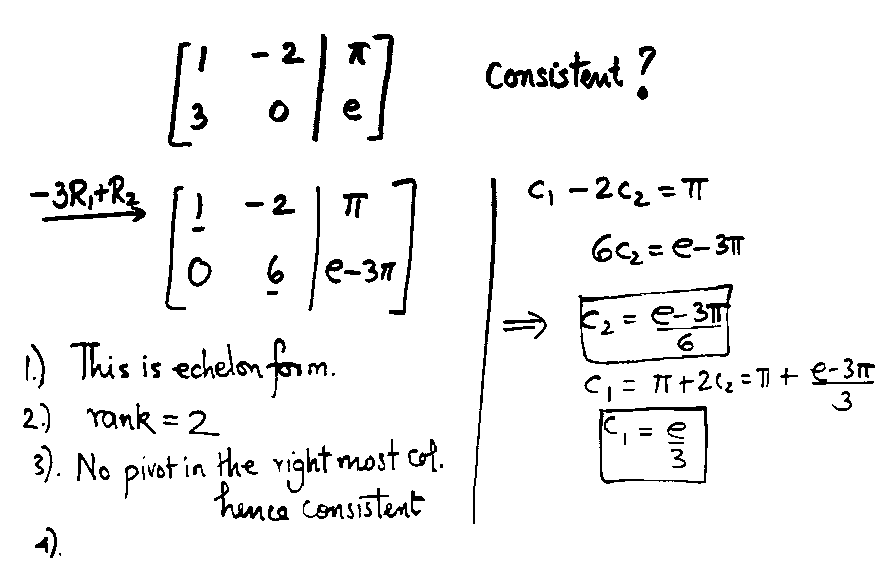 [1 -2 | π]
[3 0 | e]
Consistent?
-3R₁+R₂ →
[1 -2 | π]
[0 6 | e-3π]
1.) This is echelon form.
2.) rank = 2
3). No pivot in the right most col.
hence consistent
4).
c₁ - 2c₂ = π
6c₂ = e-3π
⇒ c₂ = (e-3π)/6
c₁ = π+2c₂ = π + (e-3π)/3
c₁ = e/3